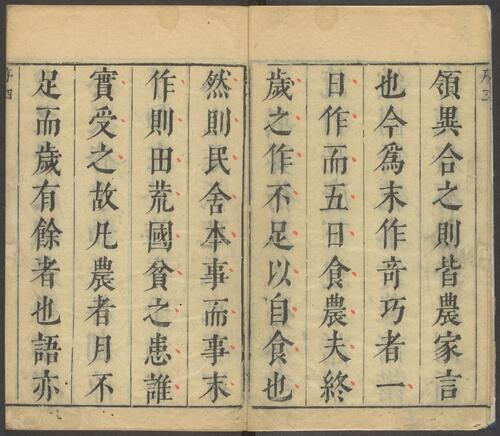 領異合之則皆農家言
也今爲末作竒巧者一
日作而五日食農夫終
歲之作不足以自食也
然則民舎本事而事末
作則田荒國貧之患誰
實受之故凡農者月不
足而歲有餘者也語亦
序四